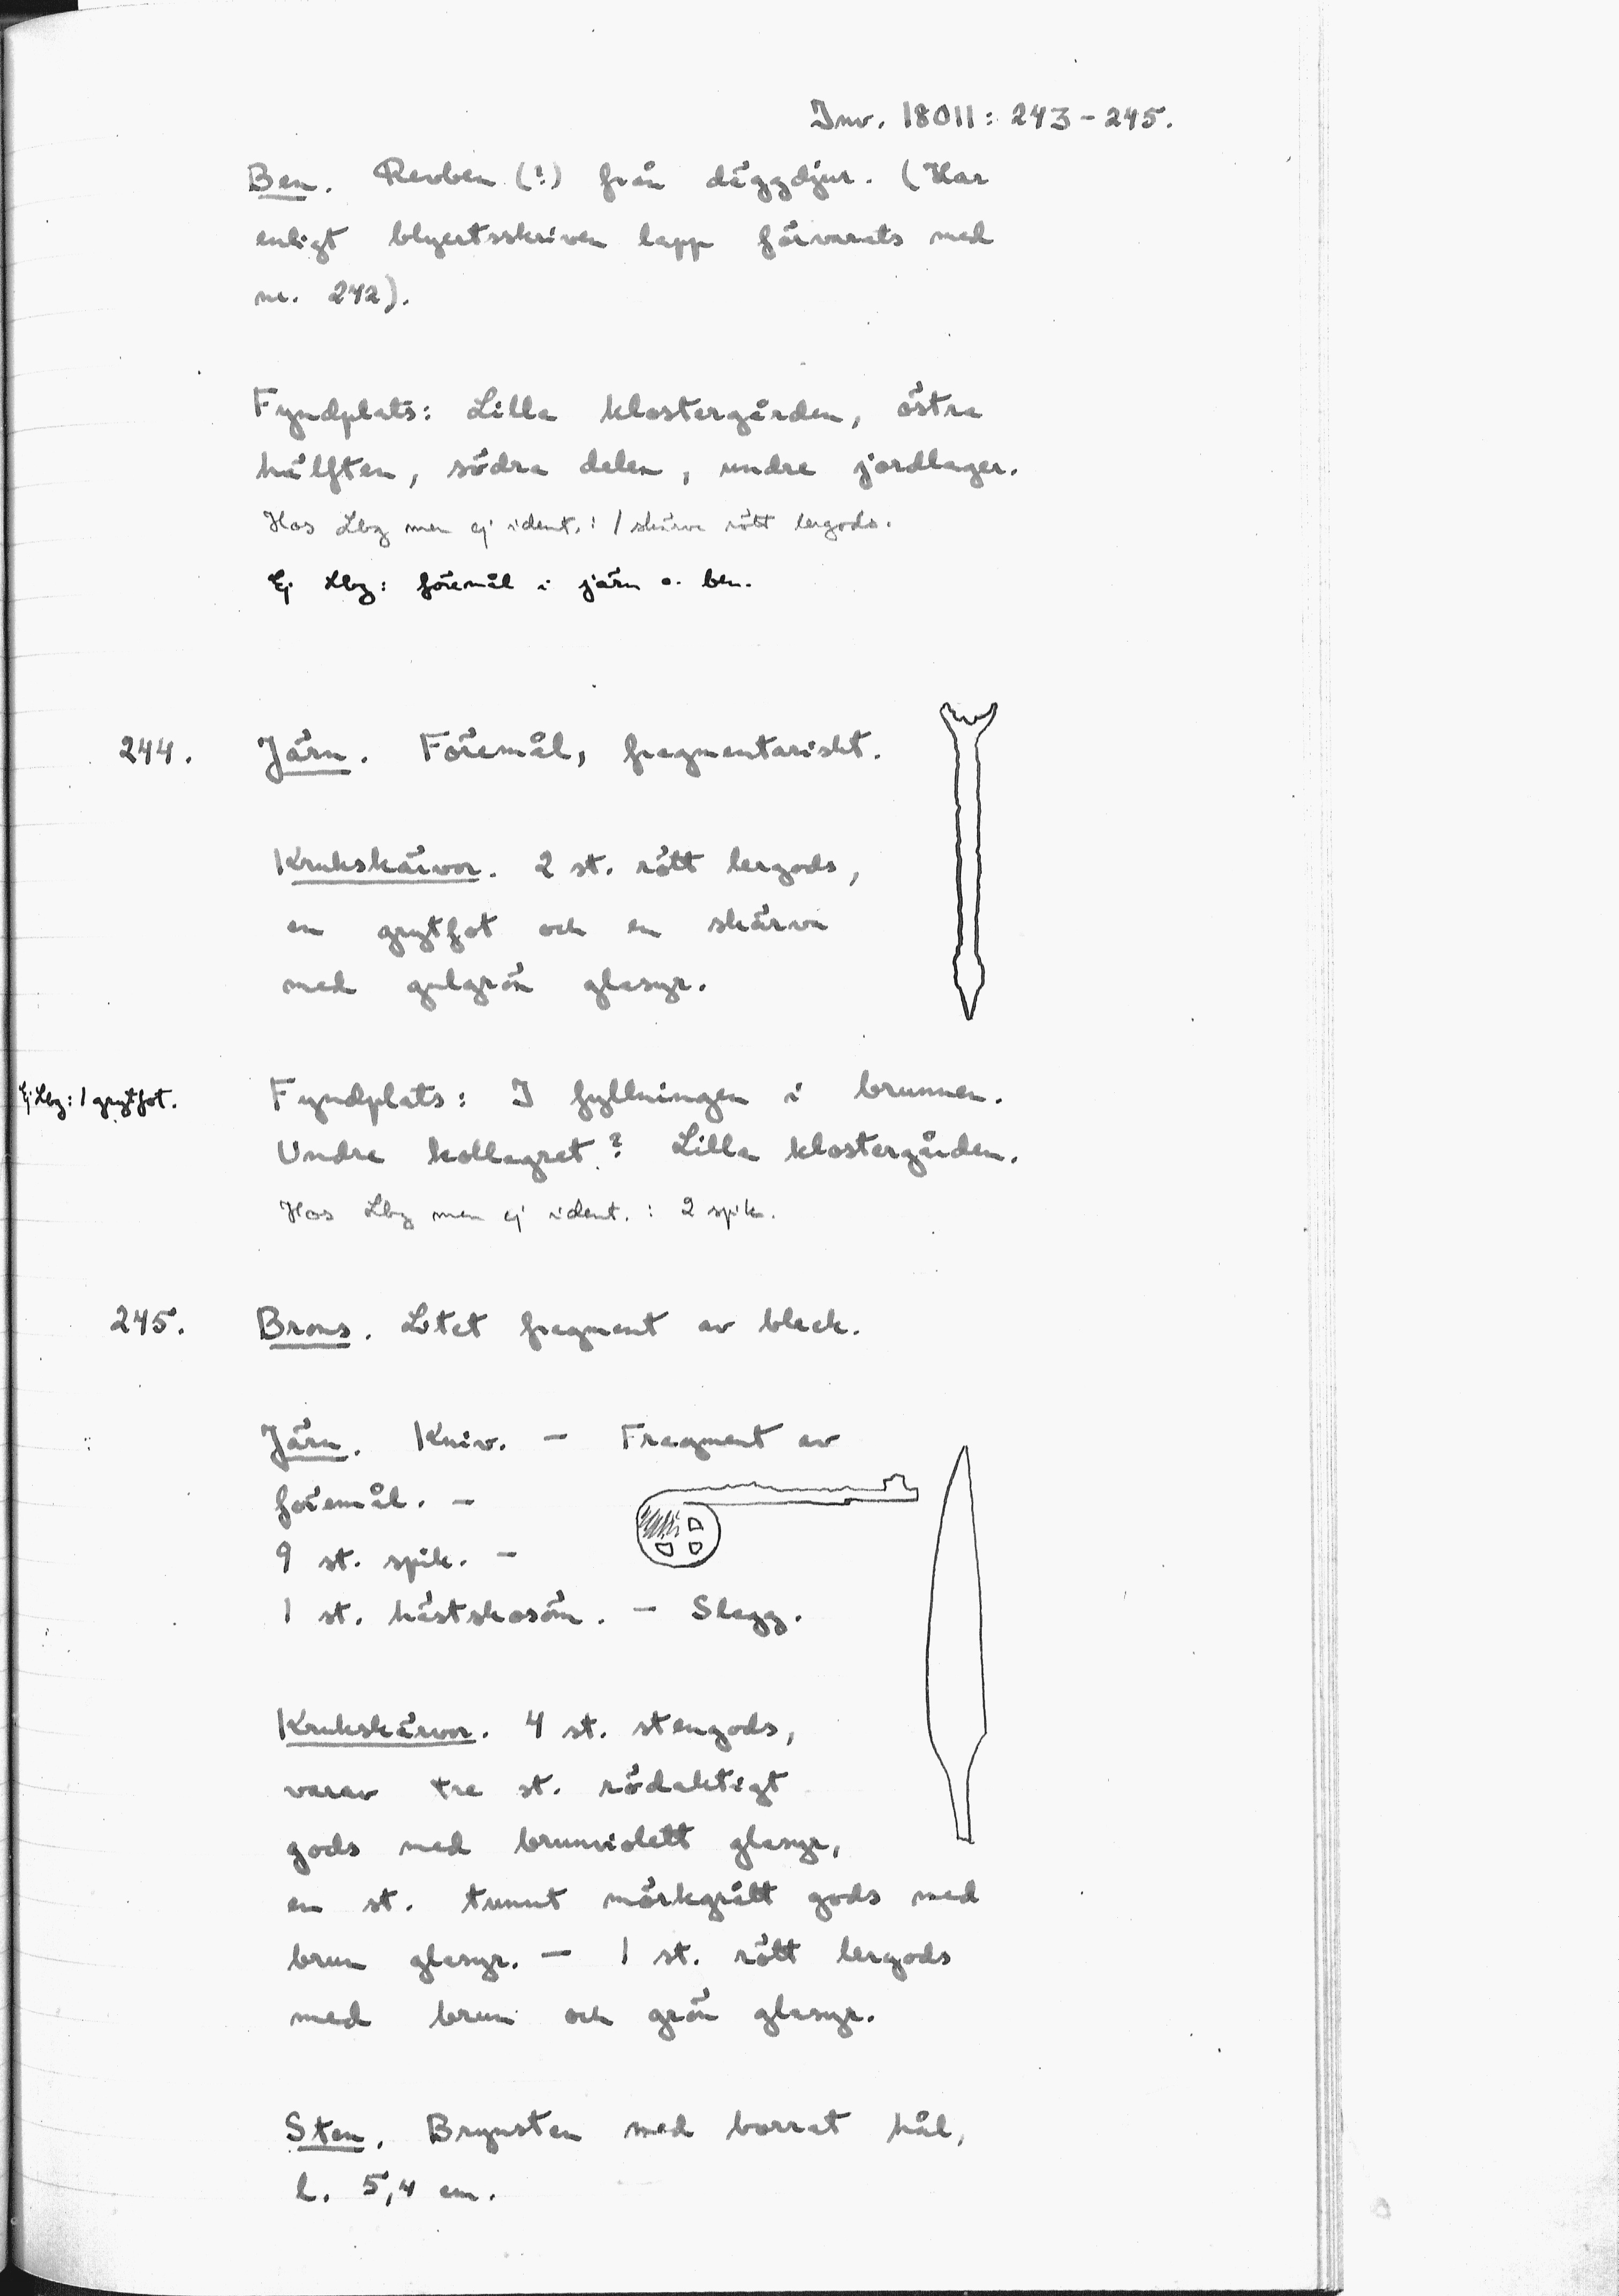 Inv. 18011: 243-245.
Ben. Revben (?) från däggdjur. (Har
enligt blyertsskriven lapp förvarats med
nr. 242).
Fyndplats: Lilla klostergården, östra
hälften, södra delen, undre jordlager.
Hos Lbg men ej ident.: 1 skärva rött lergods.
Ej Lbg: föremål i järn o. ben.
244. Järn. Föremål, fragmentariskt.
Krukskärvor. 2 st. rött lergods,
en grytfot och en skärva
med gulgrön glasyr.
Ej Lbg: 1 grytfot.
Fyndplats: I fyllningen i brunnen.
Undre kollagret? Lilla klostergården.
Hos Lbg men ej ident.: 2 spik.
245. Brons. Litet fragment av bleck.
Järn. Kniv. - Fragment av
föremål. -
9 st. spik. -
1 st. hästskosöm. - Slagg.
Krukskärvor. 4 st. stengods,
varav tre st. rödaktigt
gods med brunviolett glasyr,
en st. tunnt mörkgrått gods med
brun glasyr. - 1 st. rött lergods
med brun och grön glasyr.
Sten. Brynsten med borrat hål,
l. 5,4 cm.